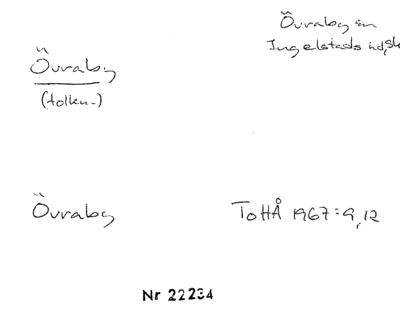 Övraby sn
Ingelstads hd, Sk
Övraby
(tolkn.)
Övraby
ToHÅ 1967:9,12
Nr 22234